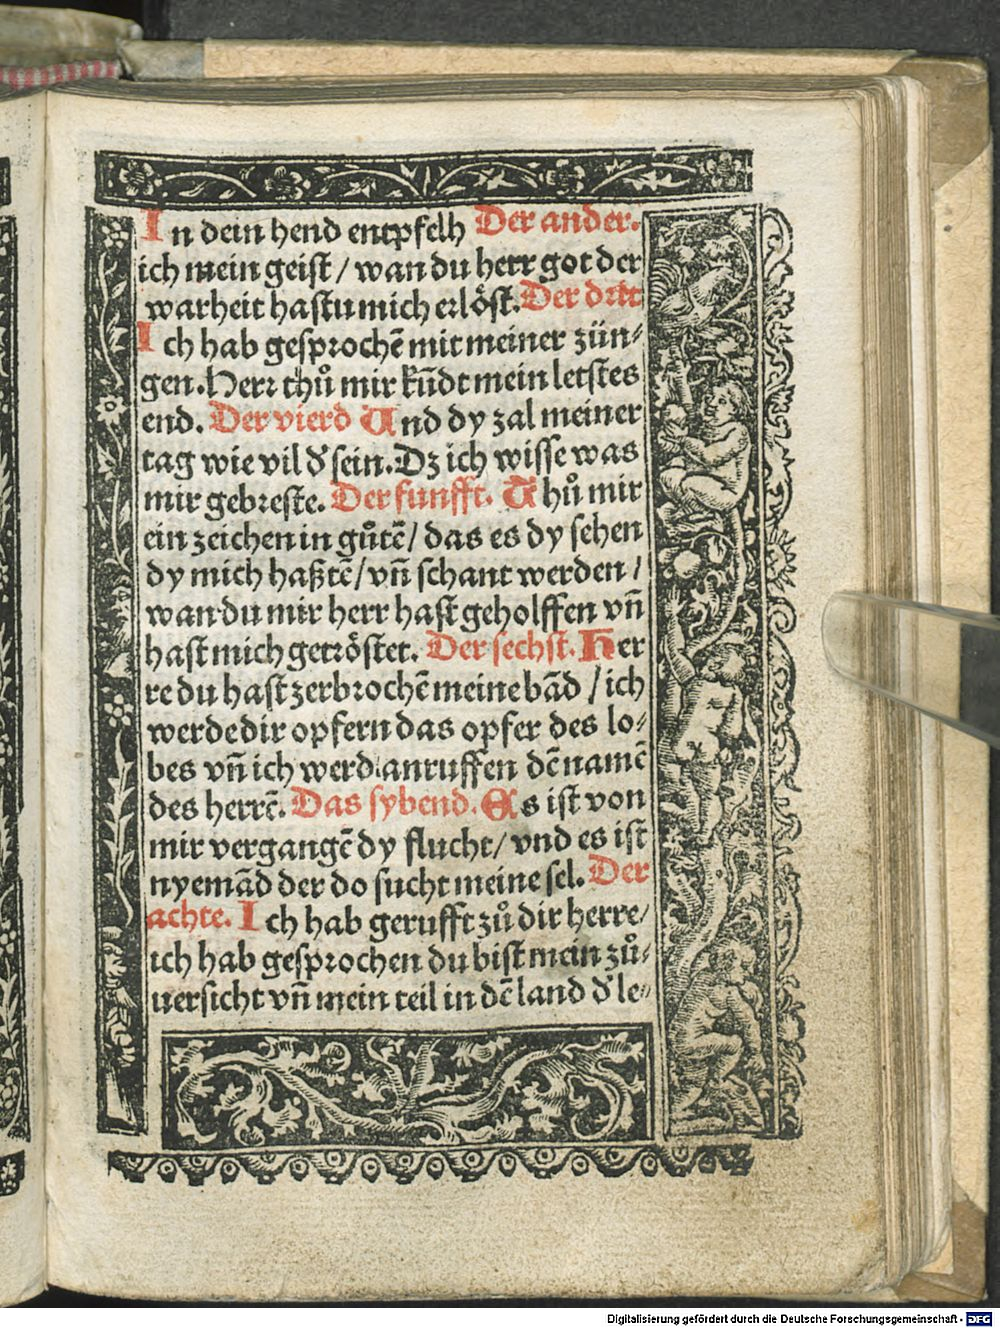 In dein hend entpfelh Der ander.
ich mein geist / wan du herr got der
warheit hastu mich erlöst. Der drit
Ich hab gesprochē mit meiner zün⸗
gen. Herr thů mir kūdt mein letstes
end. Der vierd Und dy zal meiner
tag wie vil d̕ sein. Dz ich wisse was
mir gebreste. Der funfft. Thů mir
ein zeichen in gůtē / das es dy sehen
dy mich haßtē / vn̄ schant werden /
wan du mir herr hast geholffen vn̄
hast mich getröstet. Der sechst. Her
re du hast zerbrochē meine bād / ich
werde dir opfern das opfer des lo⸗
bes vn̄ ich werd anruffen dē namē
des herrē. Das sybend. Es ist von
mir vergangē dy flucht / vnd es ist
nyemād der do sucht meine sel. Der
achte. Ich hab gerufft zů dir herre /
ich hab gesprochen du bist mein zů⸗
uersicht vn̄ mein teil in dē land d̕ le⸗
Digitalisierung gefördert durch die Deutsche Forschungsgemeinschaft - DFG